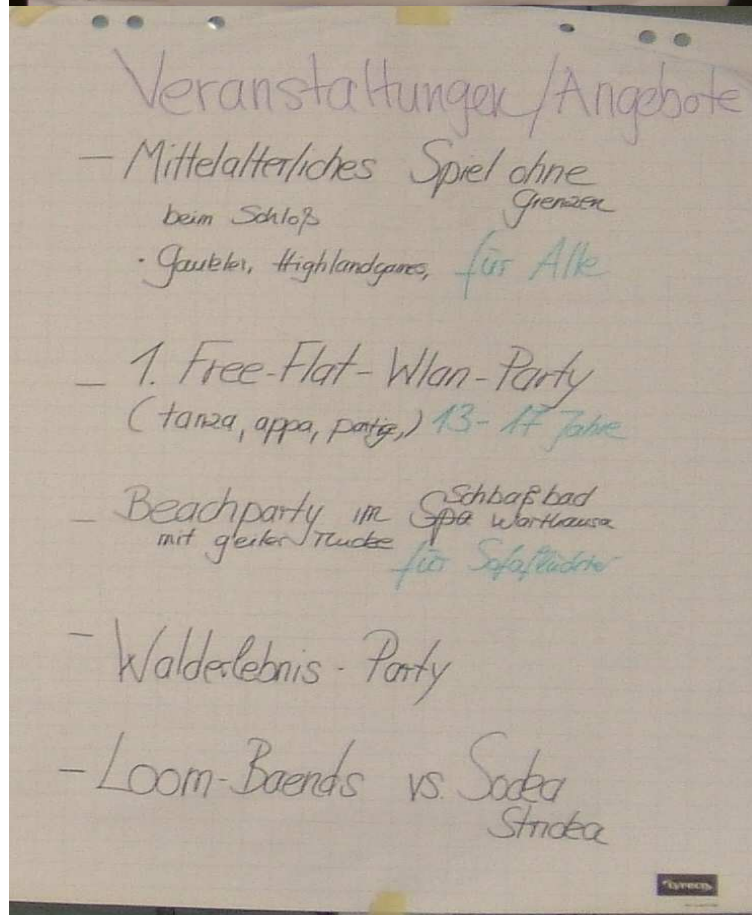 Veranstaltungen/Angebote
- Mittelalterliches Spiel ohne
Grenzen
beim Schloß
· Gaukler, Highlandgames, für Alle
- 1. Free-Flat-Wlan-Party
(tanza, appa, partie,) 13-17 Jahre
- Beachparty im Spa Schloßbad
Warthausa
mit geiler Mucke
für Sofaflüchter
- Walderlebnis-Party
- Loom-Baends vs. Socka
Stricka